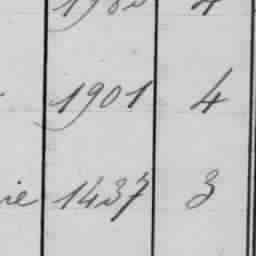 1901 4
ie 1437 3